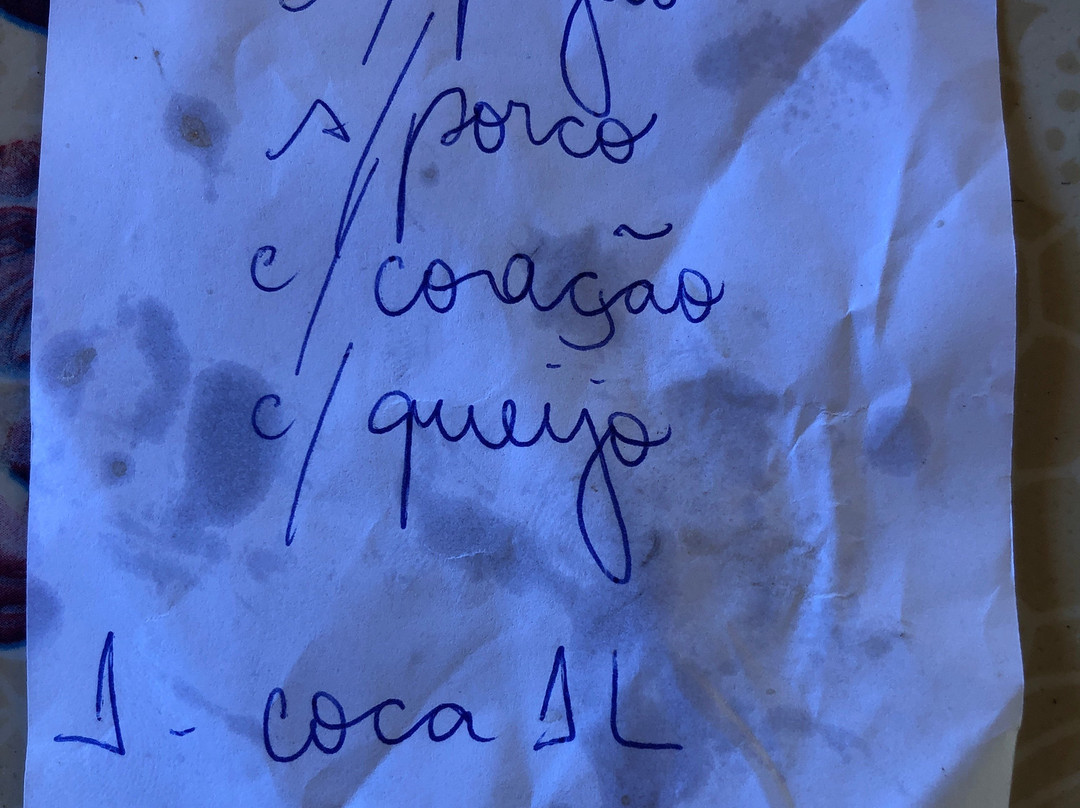 s/porco
c/coração
c/queijo
1- coca 1L